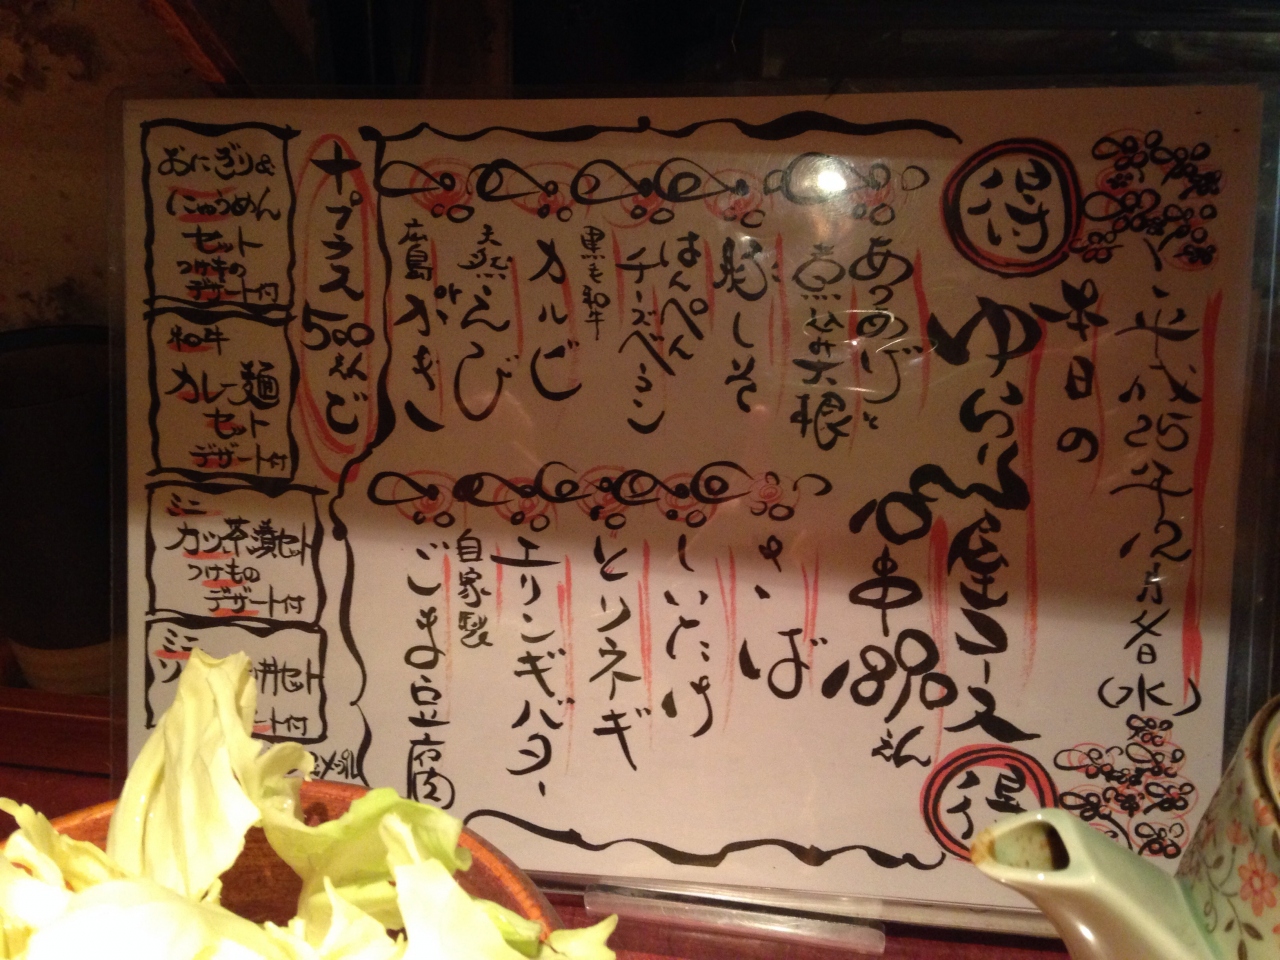 平成25年12月
(水)
得
本日の
ゆらん屋コース
10串
えん
得
あつあげと
煮込み大根
豚しそ
はんぺん
チーズベーコン
黒毛和牛
カルビ
天然えび
広島かき
さば
しいたけ
とりネギ
エリンギバター
自家製
ごま豆腐
+プラス500えんで
おにぎり&
にゅうめん
セット
つけもの
デザート付
和牛
カレー麺
セット
デザート付
ミニ
カツ茶漬セット
つけもの
デザート付
ミニ
ソ
セット
ート付